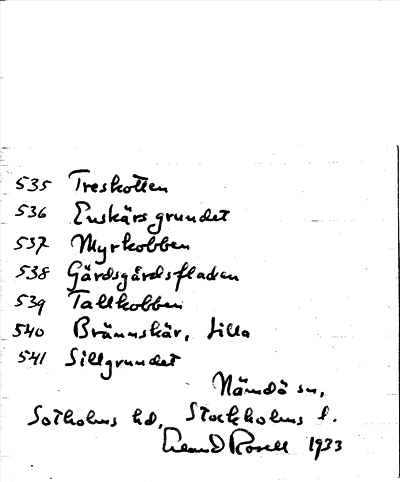 535 Treskotten
536 Enskärsgrundet
537 Myrkobben
538 Gärdsgårdsfladen
539 Tallkobben
540 Brännskär, Lilla
541 Sillgrundet
Nämdö sn,
Sotholms hd, Stockholms l.
1933